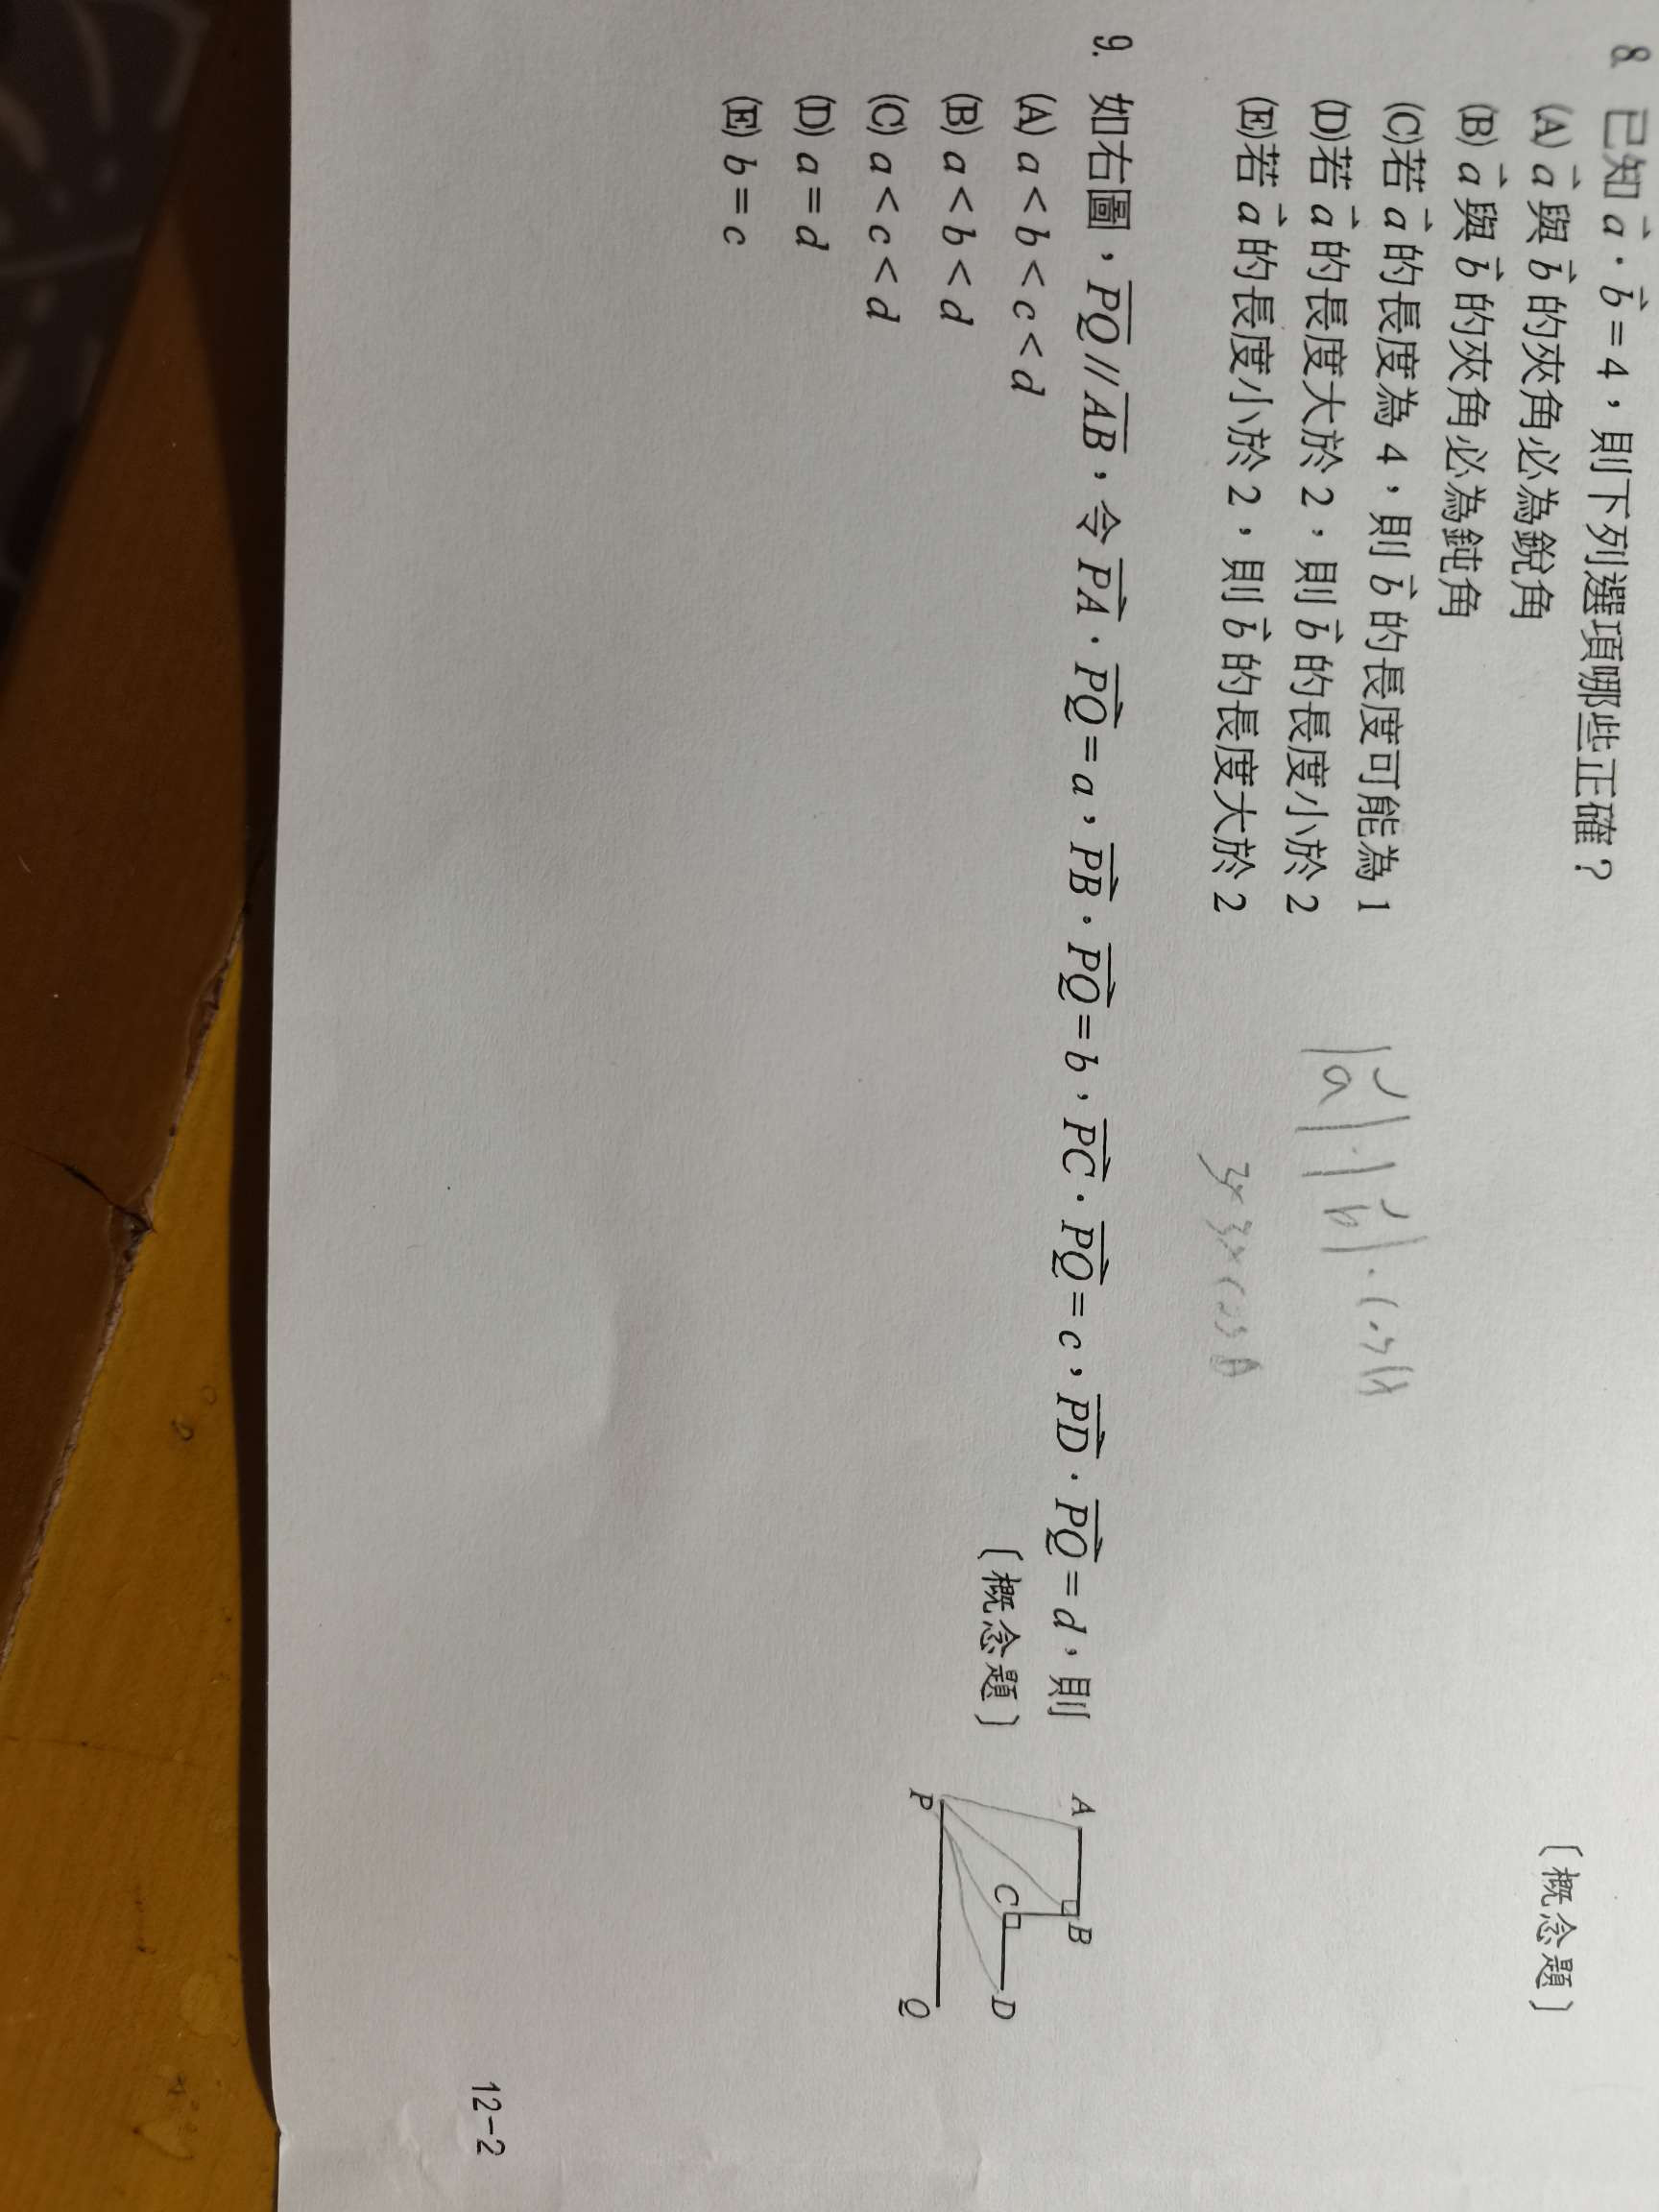 8. 已知 a⃗ · b⃗ = 4，則下列選項哪些正確？
〔概念題〕
(A) a⃗ 與 b⃗ 的夾角必為銳角
(B) a⃗ 與 b⃗ 的夾角必為鈍角
(C)若 a⃗ 的長度為 4，則 b⃗ 的長度可能為 1
(D)若 a⃗ 的長度大於 2，則 b⃗ 的長度小於 2
(E)若 a⃗ 的長度小於 2，則 b⃗ 的長度大於 2
|a⃗|·|b⃗|·cosθ
9. 如右圖，P̅Q̅ // A̅B̅，令 PA⃗ · PQ⃗ = a，PB⃗ · PQ⃗ = b，PC⃗ · PQ⃗ = c，PD⃗ · PQ⃗ = d，則
〔概念題〕
(A) a < b < c < d
(B) a < b < d
(C) a < c < d
(D) a = d
(E) b = c
A B
C D
P Q
12-2